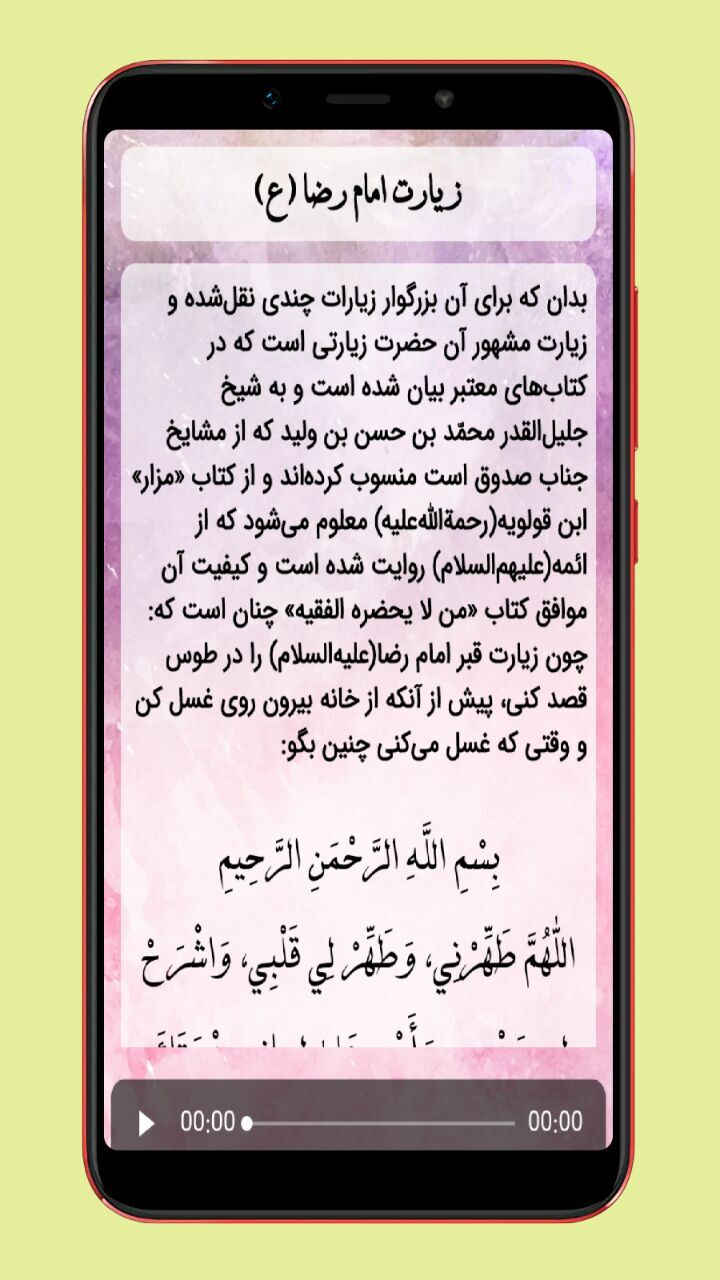 زیارت امام رضا (ع)
بدان که برای آن بزرگوار زیارات چندی نقل‌شده و
زیارت مشهور آن حضرت زیارتی است که در
کتاب‌های معتبر بیان شده است و به شیخ
جلیل‌القدر محمّد بن حسن بن ولید که از مشایخ
جناب صدوق است منسوب کرده‌اند و از کتاب «مزار»
ابن قولویه(رحمةالله‌علیه) معلوم می‌شود که از
ائمه(علیهم‌السلام) روایت شده است و کیفیت آن
موافق کتاب «من لا یحضره الفقیه» چنان است که:
چون زیارت قبر امام رضا(علیه‌السلام) را در طوس
قصد کنی، پیش از آنکه از خانه بیرون روی غسل کن
و وقتی که غسل می‌کنی چنین بگو:
بِسْمِ اللَّهِ الرَّحْمَنِ الرَّحِيمِ
اللّٰهُمَّ طَهِّرْنِي، وَطَهِّرْ لِي قَلْبِي، وَاشْرَحْ
00:00 00:00